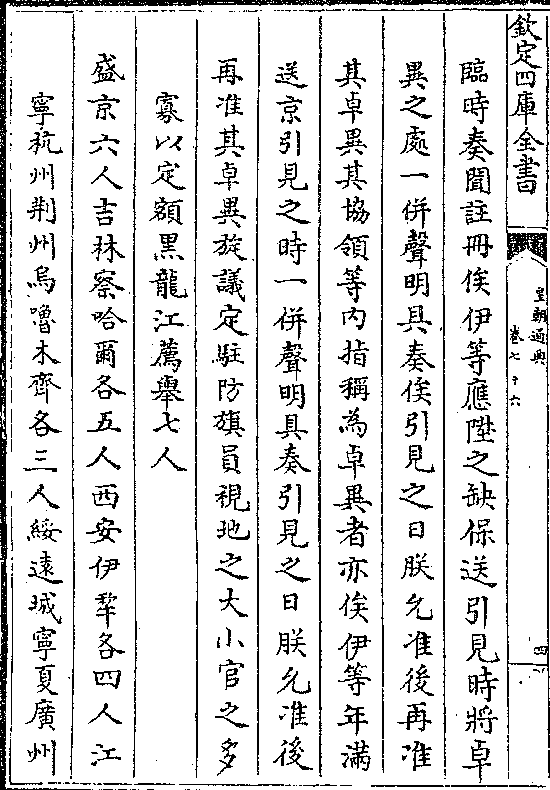 欽定四庫全書
皇朝通典
卷七十六
四
臨時奏聞註冊俟伊等應陞之缺保送引見時將卓
異之處一併聲明具奏俟引見之日朕允准後再准
其卓異其協領等內指稱為卓異者亦俟伊等年滿
送京引見之時一併聲明具奏引見之日朕允准後
再准其卓異旋議定駐防旗員視地之大小官之多
寡以定額黑龍江薦舉七人
盛京六人吉林察哈爾各五人西安伊犂各四人江
寧杭州荆州烏嚕木齊各三人綏遠城寧夏廣州